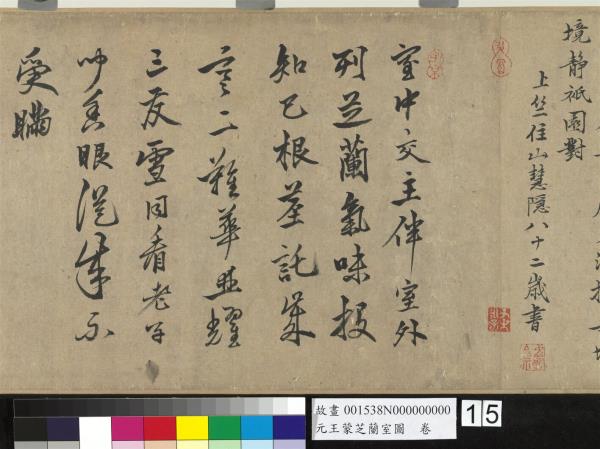 境靜祇園對
上竺住山慧隱八十二歲書
室中交主伴室外
列芝蘭氣味投
知己根莖託歲
寒二難華並耀
三友雪同看老子
吵吾眼從年不
受瞞
故畫 001538N000000000
元王蒙芝蘭室圖 卷
15